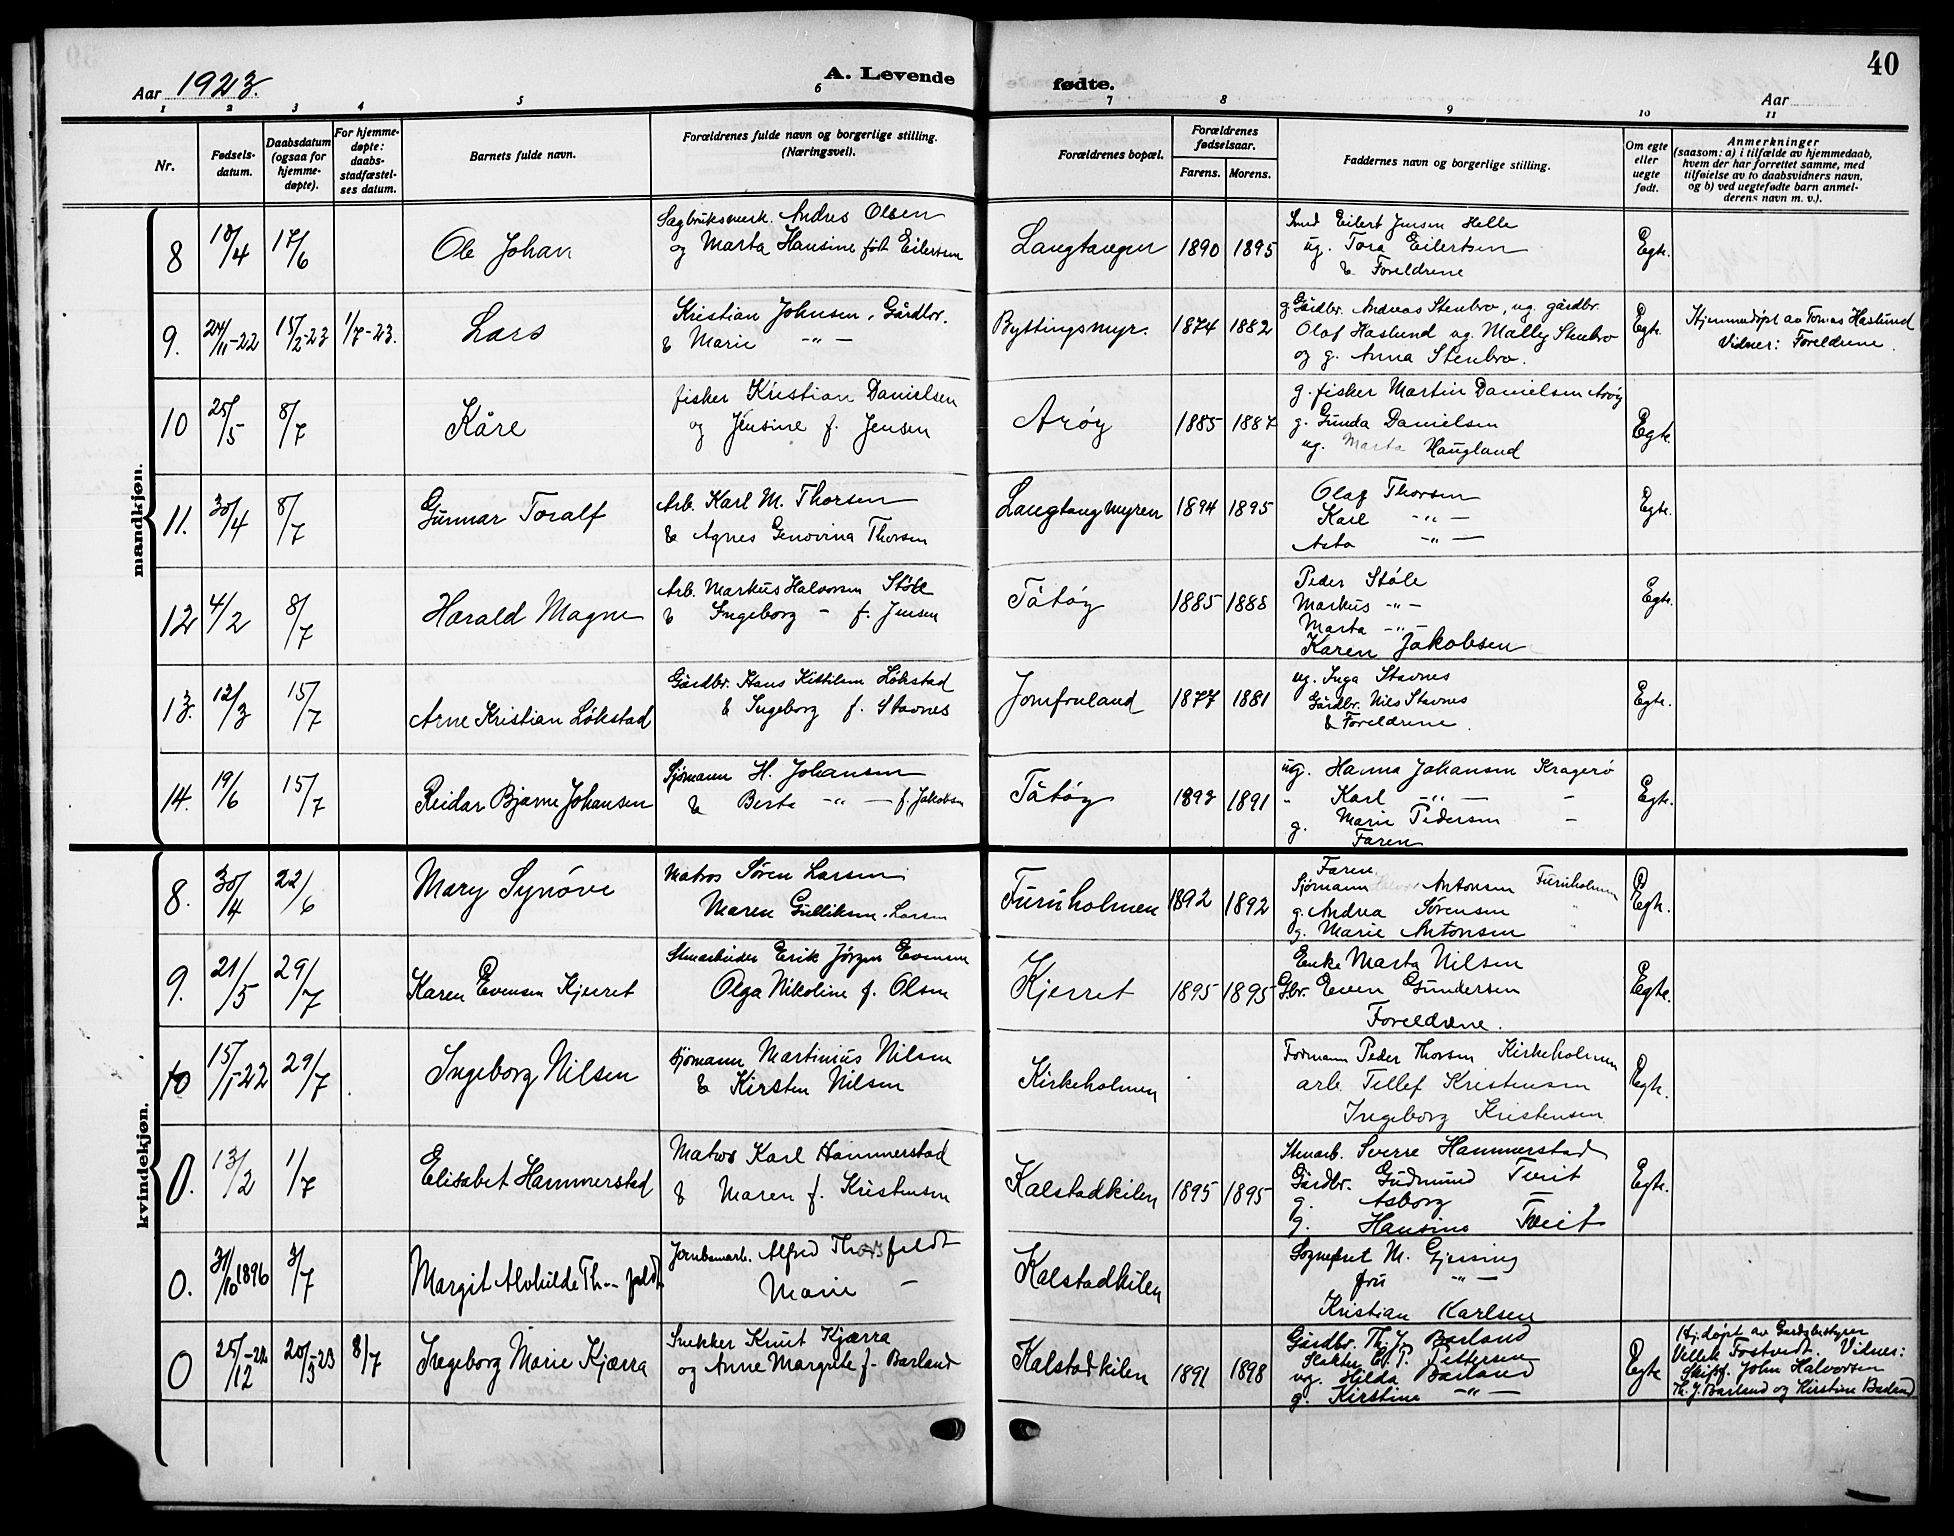 Aar 1923.
A. Levende
fødte.
40
Aar
1 2 3 4 5 6 7 8 9 10 11
Nr.
Fødsels-
datum.
Daabsdatum
(ogsaa for
hjemme-
døpte).
For hjemme-
døpte:
daabs-
stadfæstel-
ses datum.
Barnets fulde navn.
Forældrenes fulde navn og borgerlige stilling.
(Næringsvei).
Forældrenes bopæl.
Forældrenes
fødselsaar.
Farens. Morens.
Faddernes navn og borgerlige stilling.
Om egte
eller
uegte
født.
Anmerkninger
(saasom: a) i tilfælde av hjemmedaab,
hvem der har forrettet samme, med
tilføielse av to daabsvidners navn,
og b) ved uegtefødte barn anmel-
derens navn m. v.).
mandkjøn.
8 10/4 17/6 Ole Johan
Sagbruksmerk. Andres Olsen
og Marta Hansine født Eilertsen
Langtangen 1890 1895
Smed Eilert Jensen Helle
ug. Tora Eilertsen
& Foreldrene
Egte.
9. 24/11-22 15/2-23 1/7-23. Lars
Kristian Johnsen, Gårdbr.
& Marie -"-
Byttingsmyr. 1874 1882
g Gårdbr. Andreas Stenbro, ug. gårdbr.
Olaf Haslund ug. Mally Stenbro
og g. Anna Stenbro.
Egte.
Hjemmedøpt av Tomas Haslund
Vidner: Foreldrene.
10 25/5 8/7 Kåre
fisker Kristian Danielsen
og Jensine f. Jensen
Arøy 1885 1887
g. fisker Martin Danielsen Arøy
g. Gunda Danielsen
ug. Marta Haugland
Egte.
11. 30/4 8/7 Gunnar Toralf
Arb. Karl M. Thorsen
& Agnes Genovina Thorsen
Langtangmyren 1894 1895
Olaf Thorsen
Karl -"-
Asta -"-
Egte.
12 4/2 8/7 Harald Magne
Arb. Markus Halvorsen Støle
& Ingeborg - f. Jensen
Tåtøy 1885 1888
Peder Støle
Markus -"-
Marta -"-
Karen Jakobsen
Egte.
13. 12/3 15/7 Arne Kristian Løkstad
Gårdbr. Hans Kittilsen Løkstad
& Ingeborg f. Stavnes
Jomfruland 1877 1881
ug. Inga Stavnes
Gårdbr. Nils Stavnes
& Foreldrene.
Egte.
14. 19/6 15/7 Reidar Bjarne Johansen
Sjømann H. Johansen
& Berta -"- f. Jakobsen
Tåtøy 1892 1891
ug. Hanna Johansen Kragerø
" Karl -"- -
g. Marie Pedersen -
Faren
Egte.
kvindekjøn.
8. 30/4 22/6 Mary Synöve
Matros Søren Larsen
Maren Gulliksen-Larsen
Furuholmen 1892 1892
Faren
Sjømann Antonsen Furuholmen
g. Andrea Sørensen "
g. Marie Antonsen "
Egte.
9. 21/5 29/7 Karen Evensen Kjerret
Stenarbeider Erik Jørgen Evensen
Olga Nikoline f. Olsen
Kjerret 1895 1895
Enke Marta Nilsen
Gbr. Even Gundersen
Foreldrene.
Egte.
10 15/1-22 29/7 Ingeborg Nilsen
sjømann Martinius Nilsen
& Kirsten Nilsen
Kirkeholmen
Formann Peder Thorsen Kirkeholmen
arb. Tellef Kristensen
Ingeborg Kristensen
Egte.
0. 13/2 1/7 Elisabet Hammerstad
Matros Karl Hammerstad
& Maren f. Kristensen
Kalstadkilen 1895 1895
Stenarb. Sverre Hammerstad
Gårdbr. Gudmund Tveit
g. Asborg
g. Hansine Tveit
Egte.
0. 31/10 1896 3/7 Margit Alvhilde Th--feldt
Jernbanearb. Alfred Thorsfeldt
Marie -
Kalstadkilen
Sognepret M. Gjersing
fru -"-
Kristian Karlsen
0 25/12-22 20/3-23 8/7 Ingeborg Marie Kjærra
Snekker Knut Kjærra
og Anne Margrete f. Barland
Kalstadkilen 1891 1898
Gårdbr. Th. J. Barland
Slakter Pettersen
ug. Hilda Barland
g. Kirstine -"-
Egte
Hj.døpt av Gårdbestyrer
Vellek Fostvedt. Vidner:
Skipsf. John Halvorsen
Th. J. Barland og Kirstine Barland